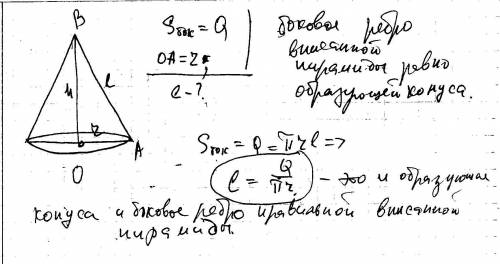 B
Sбок = Q
OA = r
l - ?
h
l
r
A
O
боковое ребро
вписанной
пирамиды равно
образующей конуса.
Sбок = Q = πrl =>
l = Q/πr - это и образующая
конуса и боковое ребро правильной вписанной
пирамиды